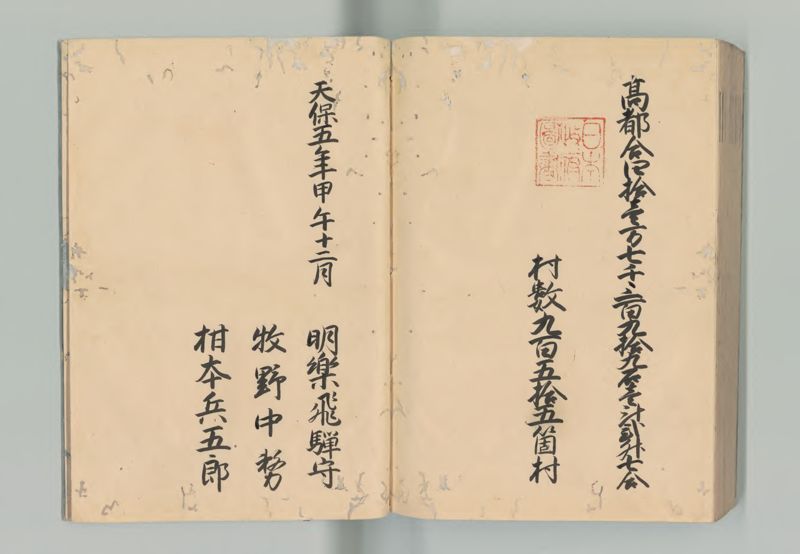 高都合四拾壱万七千三百九拾九石壱斗弐升七合
日本政府図書
村数九百五拾五箇村
天保五年甲午十二月
明楽飛騨守
牧野中務
柑本兵五郎